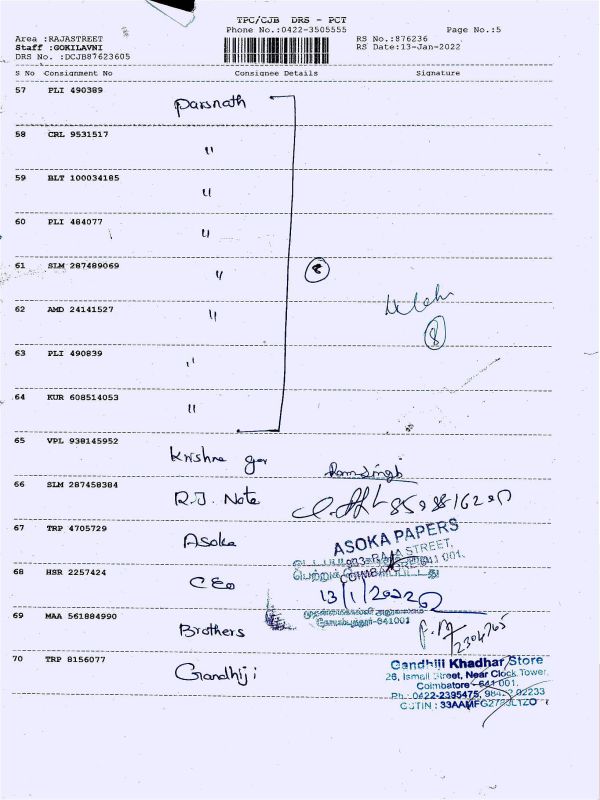 TPC/CJB DRS - PCT
Phone No.:0422-3505555 Page No.:5
Area :RAJASTREET RS No.:876236
Staff :GOKILAVNI RS Date:13-Jan-2022
DRS No. :DCJB87623605
S No Consignment No Consignee Details Signature
57 PLI 490389 Parsnath
58 CRL 9531517 "
59 BLT 100034185 "
60 PLI 484077 "
61 SLM 287489069 " 8
62 AMD 24141527 "
8
63 PLI 490839 "
64 KUR 608514053 "
65 VPL 938145952 Krishna
66 SLM 287458384 R.J. Note
67 TRP 4705729 Asoka
ASOKA PAPERS
RAJA STREET,
68 HSR 2257424 CEO
13/1/2022
69 MAA 561884990 Brothers
கோயம்புத்தூர்-641001
70 TRP 8156077 Gandhiji
Gandhiji Khadhar Store
26, Ismail Street, Near Clock Tower,
Coimbatore - 641 001.
Ph : 0422-2395475,